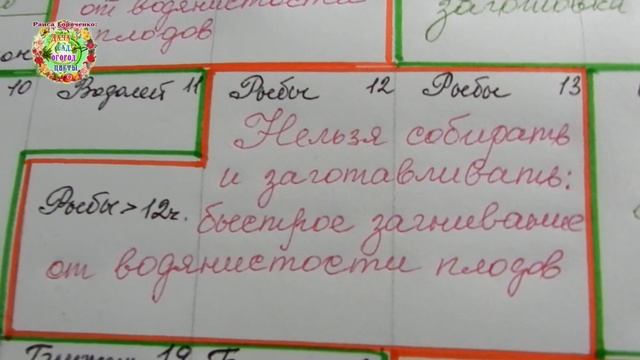 Раиса Горяченко:
ДАЧА
САД
ОГОРОД
ЦВЕТЫ
от водянистости
плодов
заготовки
он
10 Водолей 11
Рыбы 12 Рыбы 13
Нельзя собирать
и заготавливать:
Рыбы > 12ч. быстрое загнивание
от водянистости плодов
19